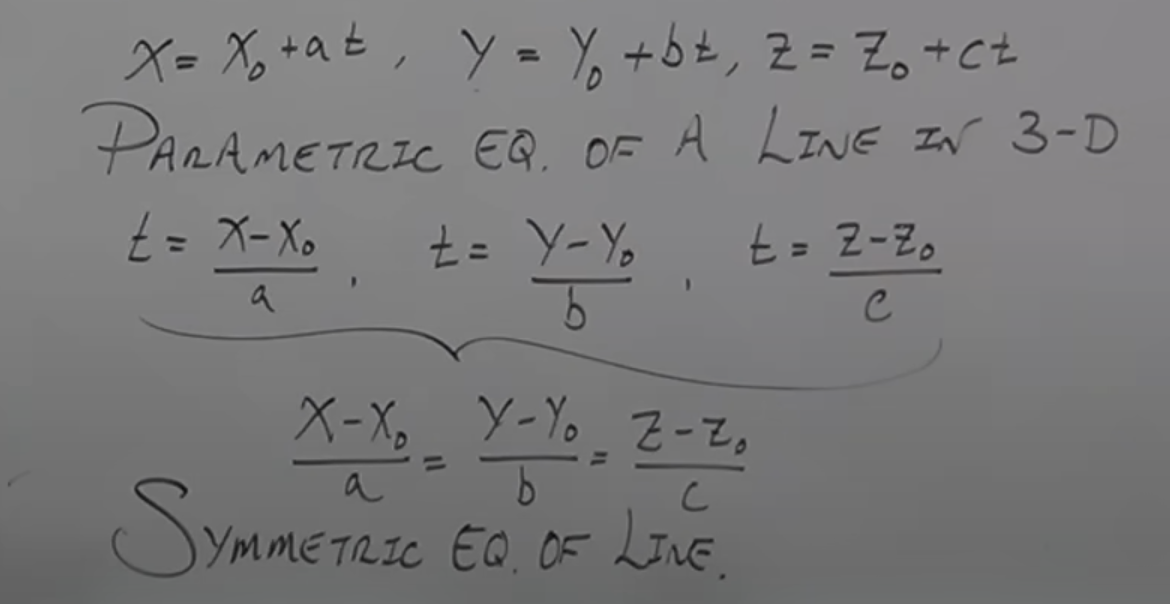 X = X₀ + at, Y = Y₀ + bt, Z = Z₀ + ct
PARAMETRIC EQ. OF A LINE IN 3-D
t = (X - X₀)/a, t = (Y - Y₀)/b, t = (Z - Z₀)/c
(X - X₀)/a = (Y - Y₀)/b = (Z - Z₀)/c
SYMMETRIC EQ. OF LINE.